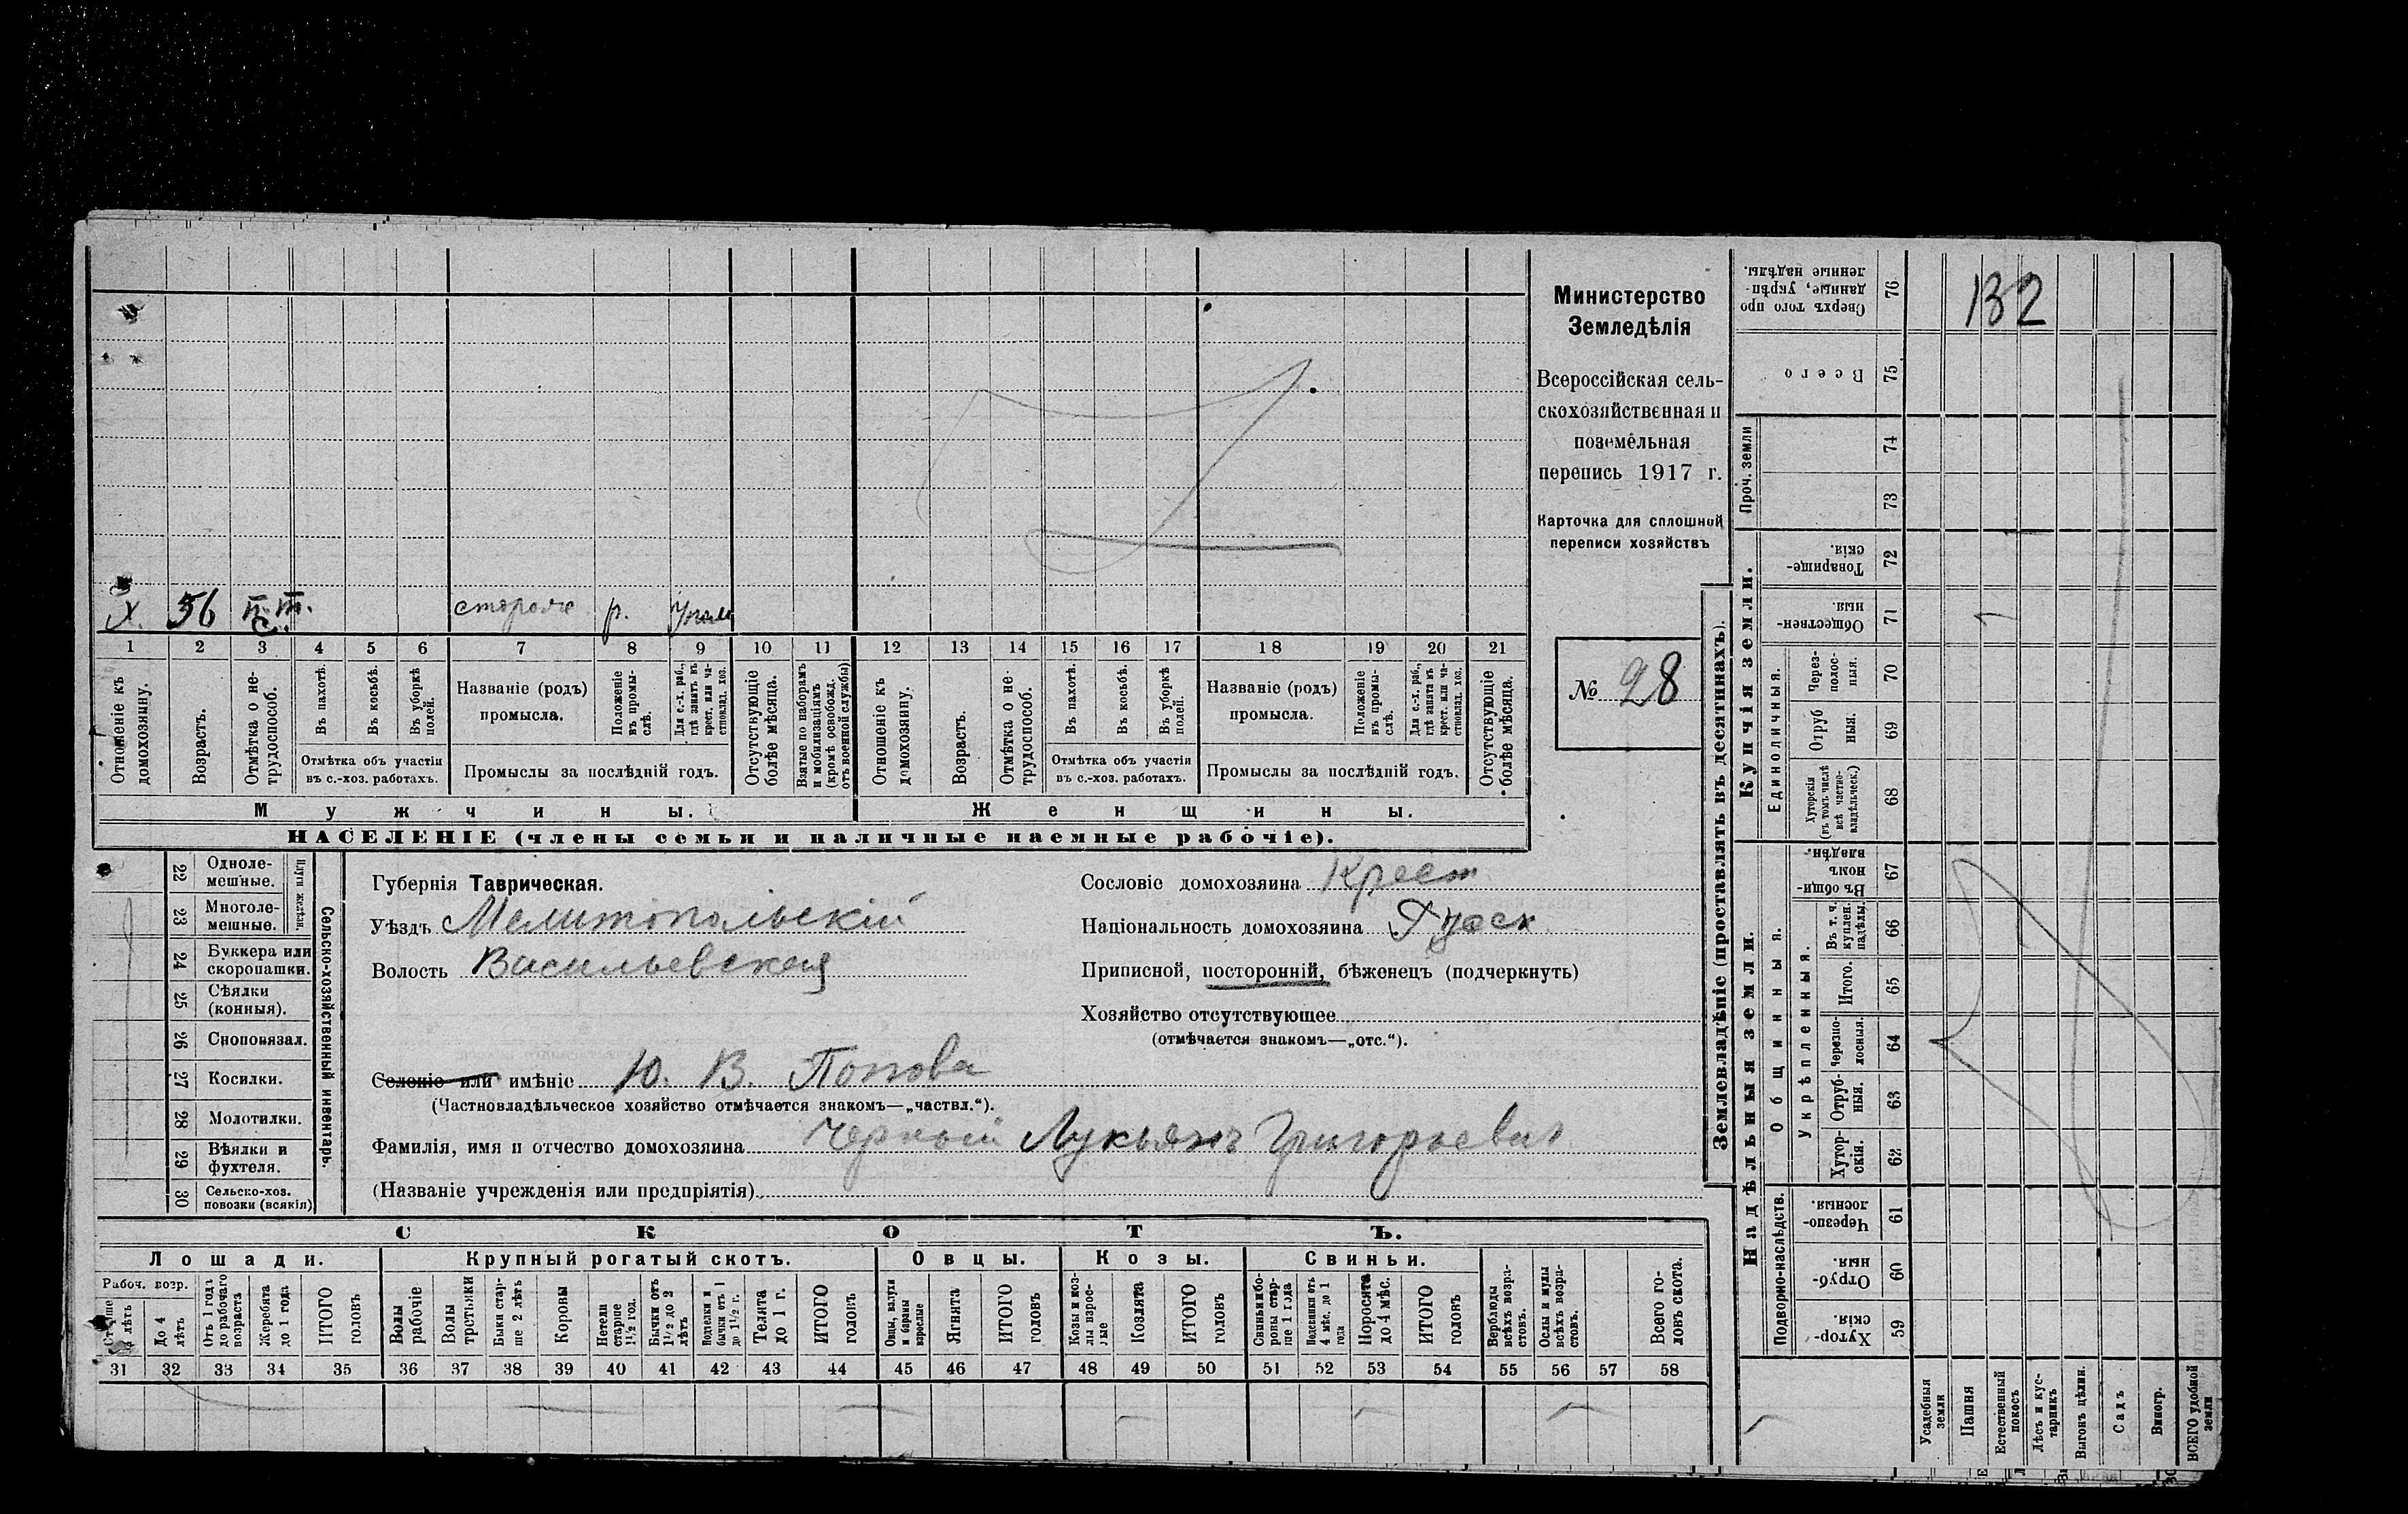 Министерство
Земледѣлія
Всероссійская сель-
скохозяйственная и
поземельная
перепись 1917 г.
Карточка для сплошной
переписи хозяйствъ
№ 28
х. 56 п.т. сторожъ р.
1 2 3 4 5 6 7 8 9 10 11 12 13 14 15 16 17 18 19 20 21
Отношеніе къ домохозяину.
Возрастъ.
Отмѣтка о не-трудоспособ.
Въ пахотѣ.
Въ косьбѣ.
Въ уборкѣ полей.
Отмѣтка объ участіи
въ с.-хоз. работахъ.
Названіе (родъ)
промысла.
Положеніе въ промы-слѣ.
Для с.-х. раб., гдѣ занятъ въ крест. или ча-стновлад. хоз.
Промыслы за послѣдній годъ.
Отсутствующіе болѣе мѣсяца.
Взятые по наборамъ и мобилизаціямъ (кромѣ освобожд. отъ военной службы)
Отношеніе къ домохозяину.
Возрастъ.
Отмѣтка о не-трудоспособ.
Въ пахотѣ.
Въ косьбѣ.
Въ уборкѣ полей.
Отмѣтка объ участіи
въ с.-хоз. работахъ.
Названіе (родъ)
промысла.
Положеніе въ промы-слѣ.
Для с.-х. раб., гдѣ занята въ крест. или ча-стновлад. хоз.
Промыслы за послѣдній годъ.
Отсутствующіе болѣе мѣсяца.
Мужчины.
Женщины.
НАСЕЛЕНІЕ (члены семьи и наличные наемные рабочіе).
Сельско-хозяйственный инвентарь.
Плуги желѣзн.
22 Одноле-мешные.
23 Многоле-мешные.
24 Буккера или скоропашки.
25 Сѣялки (конныя).
26 Сноповязал.
27 Косилки.
28 Молотилки.
29 Вѣялки и фухтеля.
30 Сельско-хоз. повозки (всякія)
Губернія Таврическая.
Уѣздъ Мелитопольскій
Волость Васильевская
Сословіе домохозяина Крест
Національность домохозяина Русск
Приписной, посторонній, бѣженецъ (подчеркнуть)
Хозяйство отсутствующее
(отмѣчается знакомъ—„отс.“).
Селеніе или имѣніе Ю. В. Попова
(Частновладѣльческое хозяйство отмѣчается знакомъ—„частвл.“).
Фамилія, имя и отчество домохозяина Черный Лукьянъ Григорьевич
(Названіе учрежденія или предпріятія)
СКОТЪ.
Лошади.
Крупный рогатый скотъ.
Овцы.
Козы.
Свиньи.
Рабоч. возр.
Старше 4 лѣтъ
До 4 лѣтъ
Отъ 1 года до рабочаго возраста
Жеребята до 1 года
ИТОГО головъ
Волы рабочіе
Волы третьяки
Быки стар-ше 2 лѣтъ
Коровы
Нетели старше 1½ год.
Бычки отъ 1½ до 2 лѣтъ
Подтелки и бычки отъ 1 до 1½ г.
Телята до 1 г.
ИТОГО головъ
Овцы, валухи и бараны взрослые
Ягнята
ИТОГО головъ
Козы и коз-лы взрос-лые
Козлята
ИТОГО головъ
Свиньи и бо-ровы стар-ше 1 года
Подсвинки отъ 4 мѣс. до 1 года
Поросята до 4 мѣс.
ИТОГО головъ
Верблюды всѣхъ возра-стовъ.
Ослы и мулы всѣхъ возра-стовъ.
Всего го-ловъ скота.
31 32 33 34 35 36 37 38 39 40 41 42 43 44 45 46 47 48 49 50 51 52 53 54 55 56 57 58
Землевладѣніе (проставлять въ десятинахъ).
Надѣльныя земли.
Купчія земли.
Проч. земли
Подворно-наслѣдств.
Общинныя.
Укрѣпленныя.
Единоличныя.
Сверхъ того про данные, укрѣп-ленные надѣлы. 76
132
Всего 75
74
73
Товарище-скія. 72
Обществен-ныя. 71
Через-полос-ныя. 70
Отруб ныя. 69
Хуторскія (въ томъ числѣ всѣ частно-владѣльческ.) 68
Въ общи-номъ владѣн. 67
Въ т. ч. куплен. надѣлы. 66
Итого. 65
Черезпо-лосныя. 64
Отруб-ныя. 63
Хутор-скія. 62
Черезпо-лосныя. 61
Отруб-ныя. 60
Хутор-скія. 59
Усадебныя земли
Пашня
Естественный покосъ
Лѣсъ и кус-тарникъ
Выгонъ цѣлин.
Садъ
Виногр.
ВСЕГО удобной земли